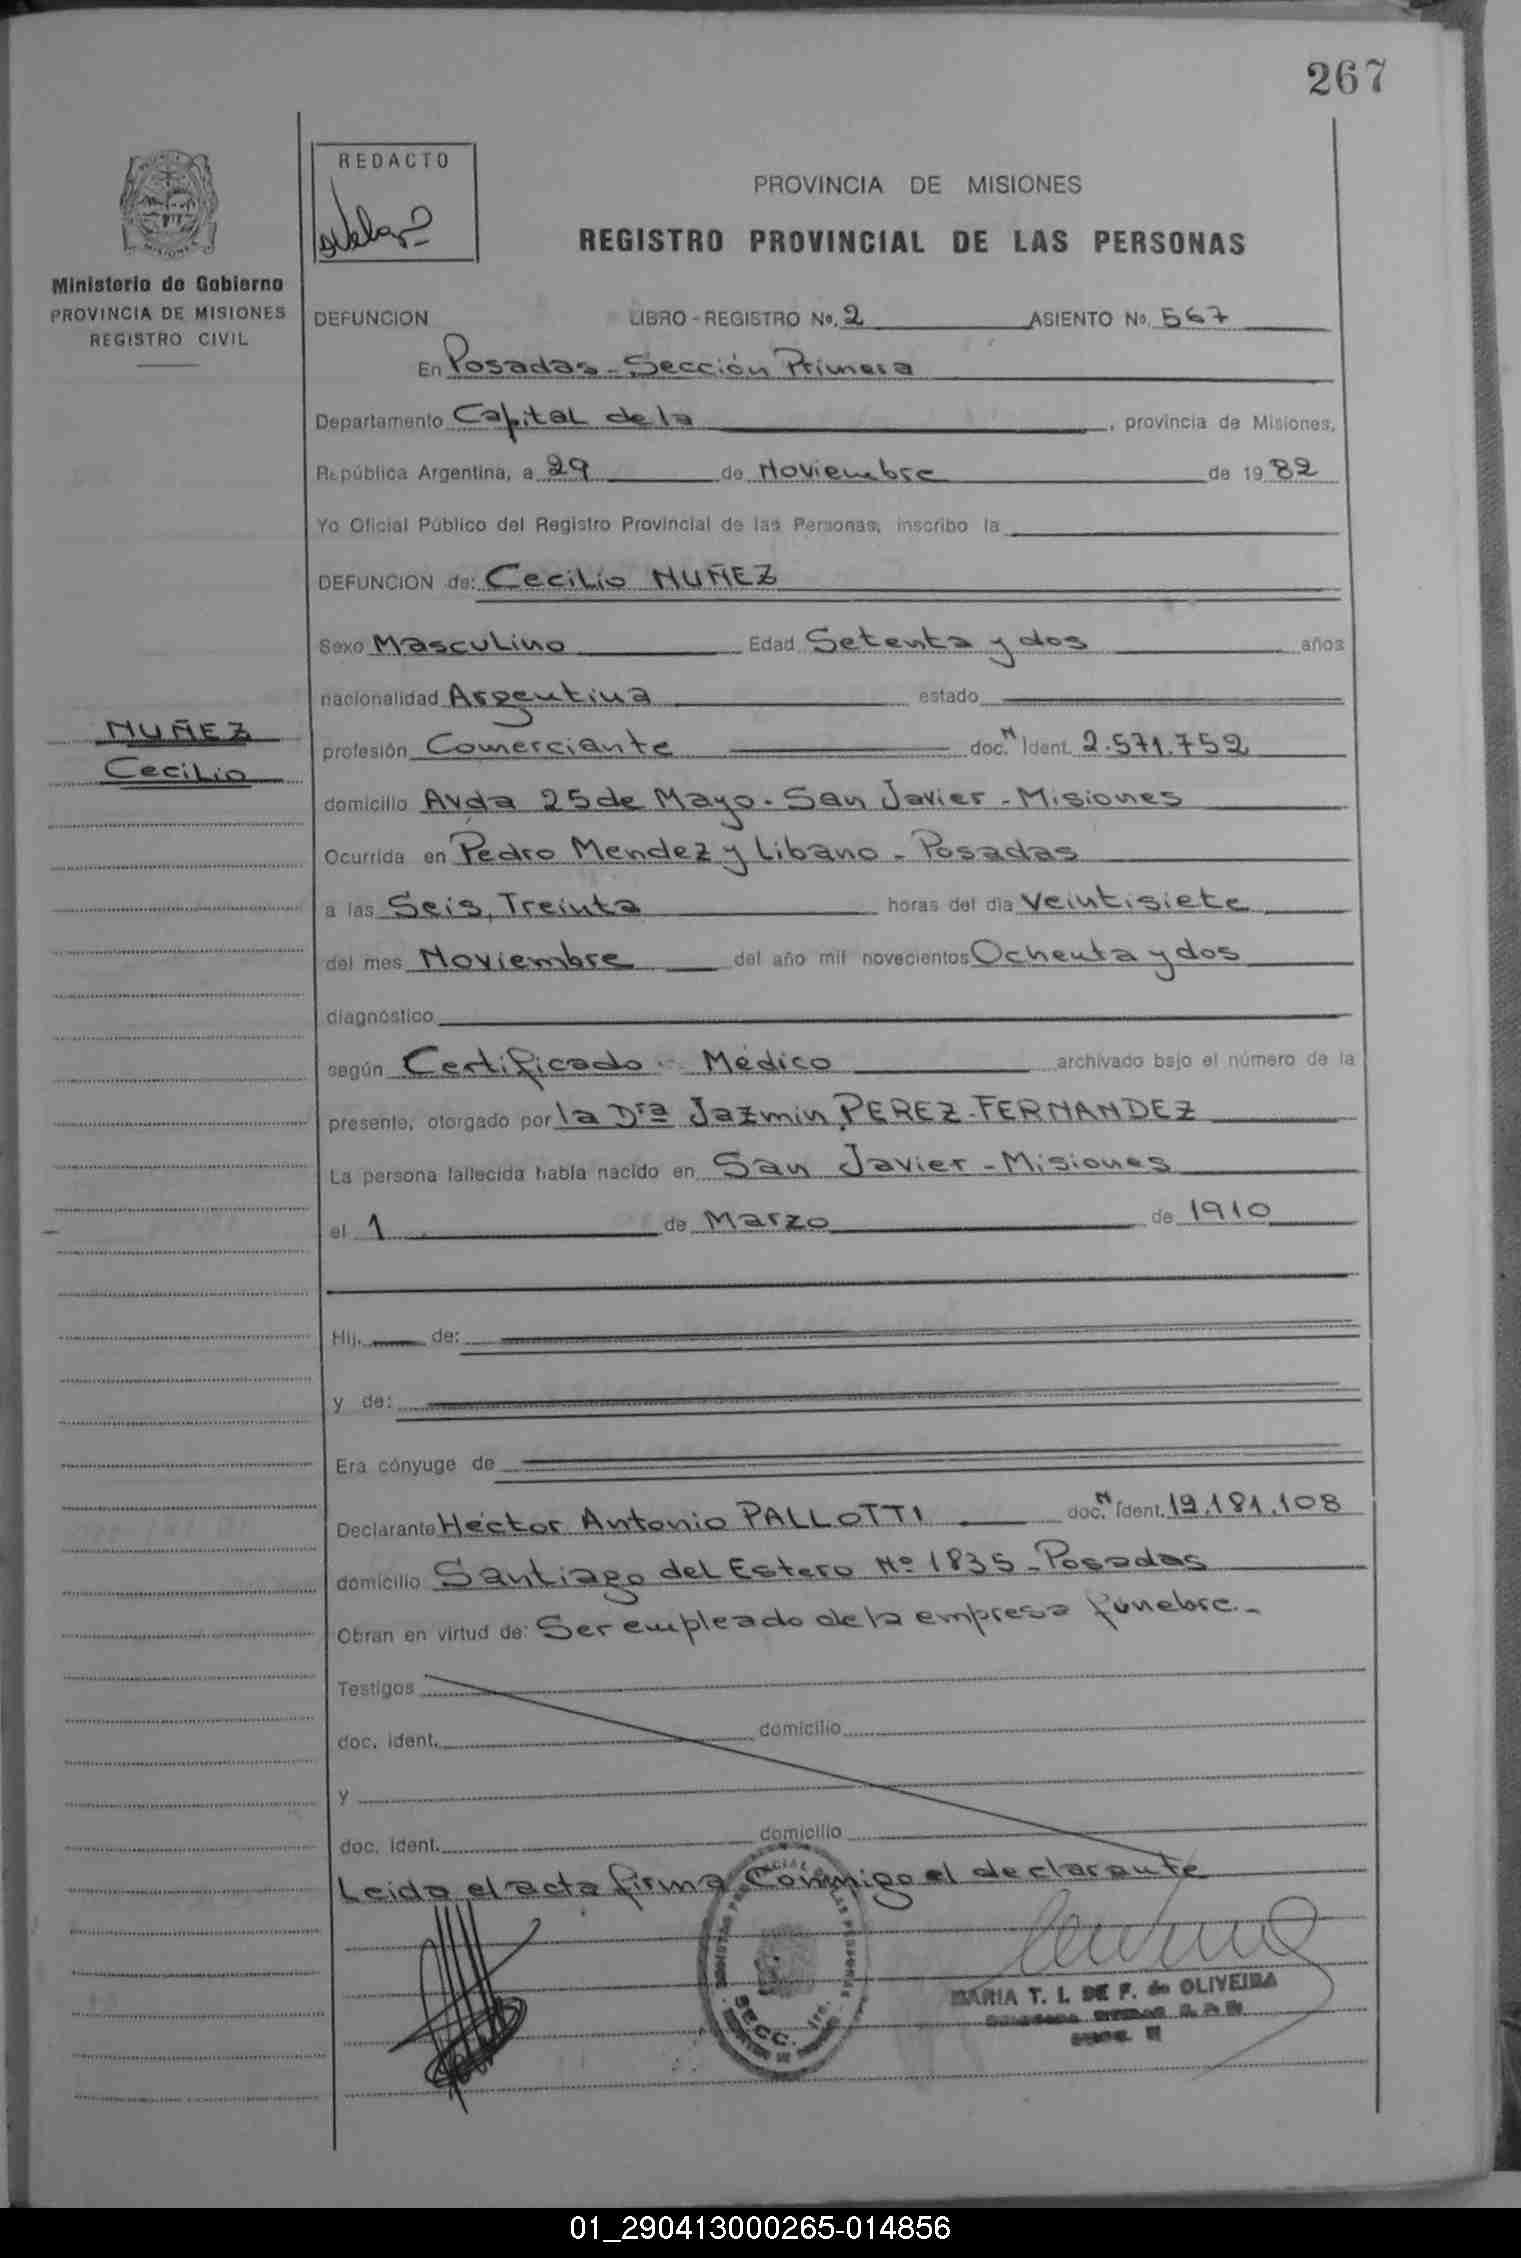 267
REDACTO
PROVINCIA DE MISIONES
REGISTRO PROVINCIAL DE LAS PERSONAS
Ministerio de Gobierno
PROVINCIA DE MISIONES
REGISTRO CIVIL
DEFUNCION LIBRO - REGISTRO No. 2 ASIENTO No. 567
En Posadas - Sección Primera
Departamento Capital de la , provincia de Misiones,
República Argentina, a 29 de Noviembre de 19 82
Yo Oficial Público del Registro Provincial de las Personas, inscribo la
DEFUNCION de: Cecilio NUÑEZ
Sexo Masculino Edad Setenta y dos años
nacionalidad Argentina estado
NUÑEZ
Cecilio
profesión Comerciante doc. N Ident. 2.571.752
domicilio Avda 25 de Mayo - San Javier - Misiones
Ocurrida en Pedro Mendez y Libano - Posadas
a las Seis, Treinta horas del día Veintisiete
del mes Noviembre del año mil novecientos Ochenta y dos
diagnóstico
según Certificado Médico archivado bajo el número de la
presente, otorgado por la Dra Jazmin PEREZ-FERNANDEZ
La persona fallecida había nacido en San Javier - Misiones
el 1 de Marzo de 1910
Hij. de:
y de:
Era cónyuge de
Declarante Héctor Antonio PALLOTTI doc. N Ident. 12.181.108
domicilio Santiago del Estero Nº 1835 - Posadas
Obran en virtud de: Ser empleado de la empresa fúnebre -
Testigos
doc. ident. domicilio
y
doc. ident. domicilio
Leida el acta firma Conmigo el declarante
SECC. 1ra.
MARIA T. I. DE F. de OLIVEIRA
01_290413000265-014856